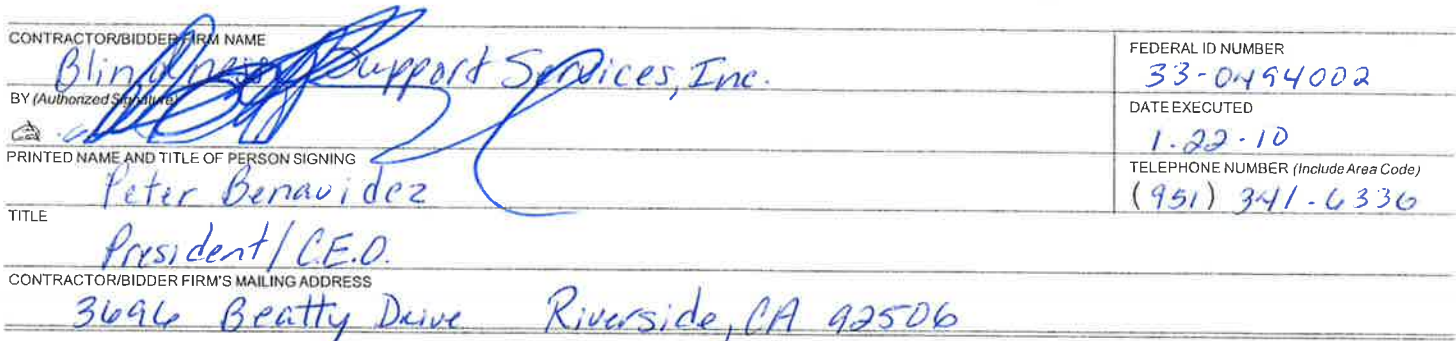 CONTRACTOR/BIDDER FIRM NAME
Blindness Support Services, Inc.
FEDERAL ID NUMBER
33-0494002
BY (Authorized Signature)
DATE EXECUTED
1.22.10
PRINTED NAME AND TITLE OF PERSON SIGNING
Peter Benavidez
TELEPHONE NUMBER (Include Area Code)
(951) 341-6336
TITLE
President/C.E.O.
CONTRACTOR/BIDDER FIRM'S MAILING ADDRESS
3696 Beatty Drive Riverside, CA 92506